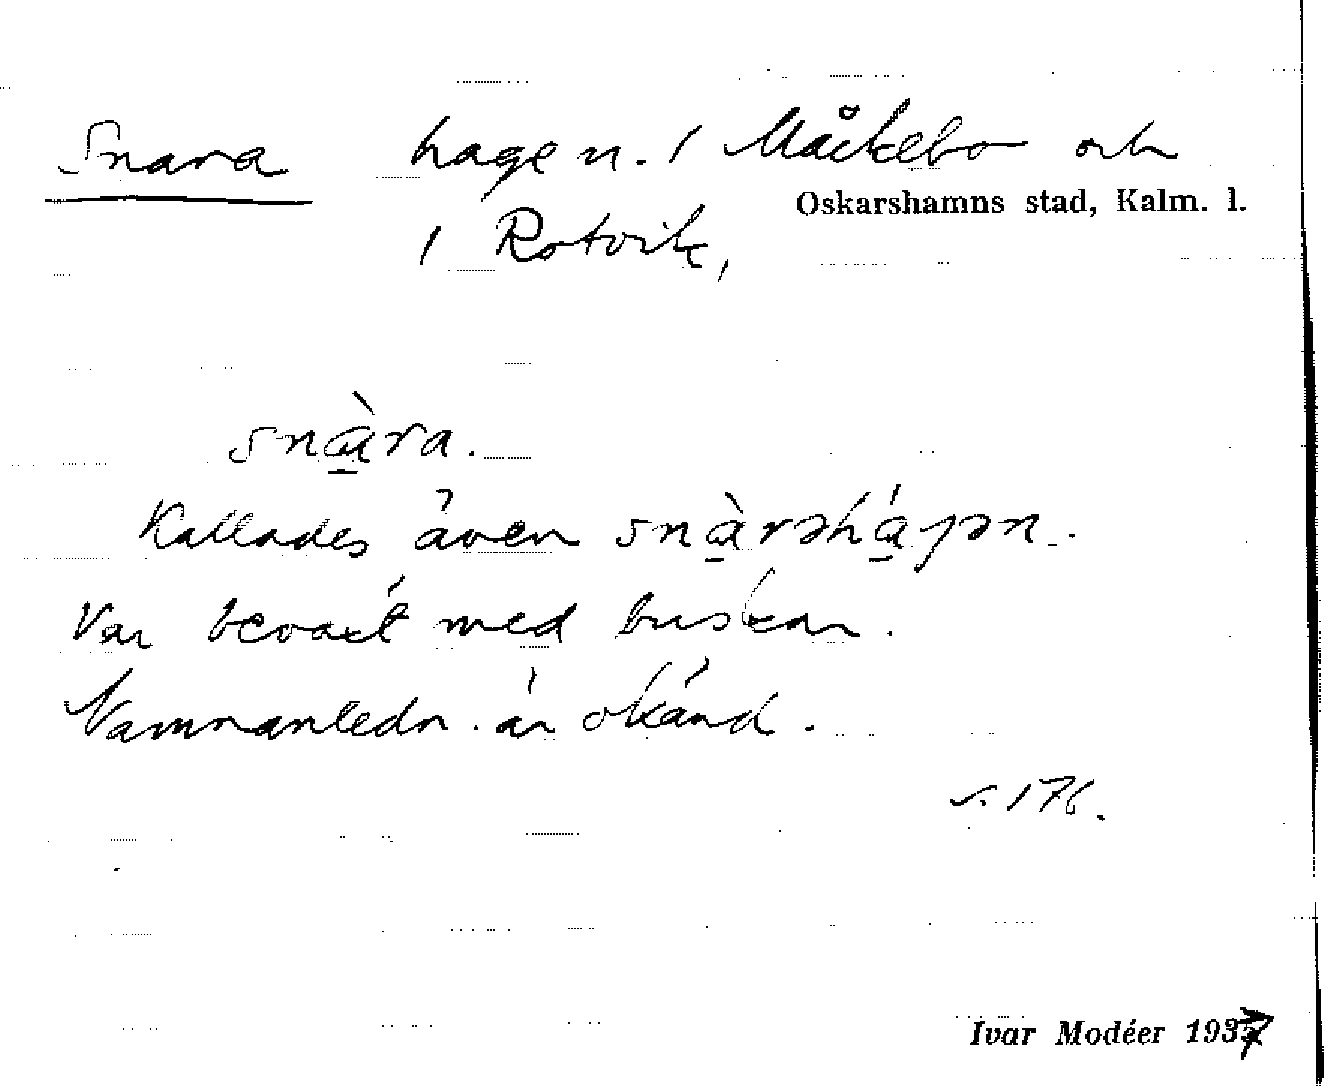 Snara hage n. 1 Måckebo och
Oskarshamns stad, Kalm. l.
1 Rotvik,
snàra.
Kallades även snàrəháɡən.
Var beväxt med buskar.
Namnanledn. är okänd.
s. 176.
Ivar Modéer 1937